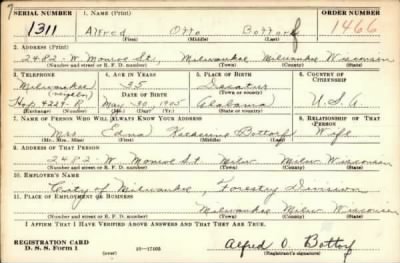 SERIAL NUMBER 1. NAME (Print) ORDER NUMBER
1311 Alfred Otto Bottorf 1466
(First) (Middle) (Last)
2. ADDRESS (Print)
2482-W Monroe St., Milwaukee, Milwaukee Wisconsin
(Number and street or R. F. D. number) (Town) (County) (State)
3. TELEPHONE 4. AGE IN YEARS 5. PLACE OF BIRTH 6. COUNTRY OF CITIZENSHIP
Milwaukee (neighbor) 35 Decatur
DATE OF BIRTH (Town or county)
Hop. 4229-R May-30 1905 Alabama U.S.A.
(Exchange) (Number) (Mo.) (Day) (Yr.) (State or country)
7. NAME OF PERSON WHO WILL ALWAYS KNOW YOUR ADDRESS 8. RELATIONSHIP OF THAT PERSON
Mrs. Edna Katherine Bottorf Wife
(Mr., Mrs., Miss) (First) (Middle) (Last)
9. ADDRESS OF THAT PERSON
2482-W Monroe St. Milw. Milw. Wisconsin
(Number and street or R. F. D. number) (Town) (County) (State)
10. EMPLOYER'S NAME
City of Milwaukee, Forestry Division
11. PLACE OF EMPLOYMENT OR BUSINESS
Milwaukee Milw. Wisconsin
(Number and street or R. F. D. number) (Town) (County) (State)
I AFFIRM THAT I HAVE VERIFIED ABOVE ANSWERS AND THAT THEY ARE TRUE.
REGISTRATION CARD
D. S. S. Form 1 (over) 16-17105 Alfred O. Bottorf
(Registrant's signature)